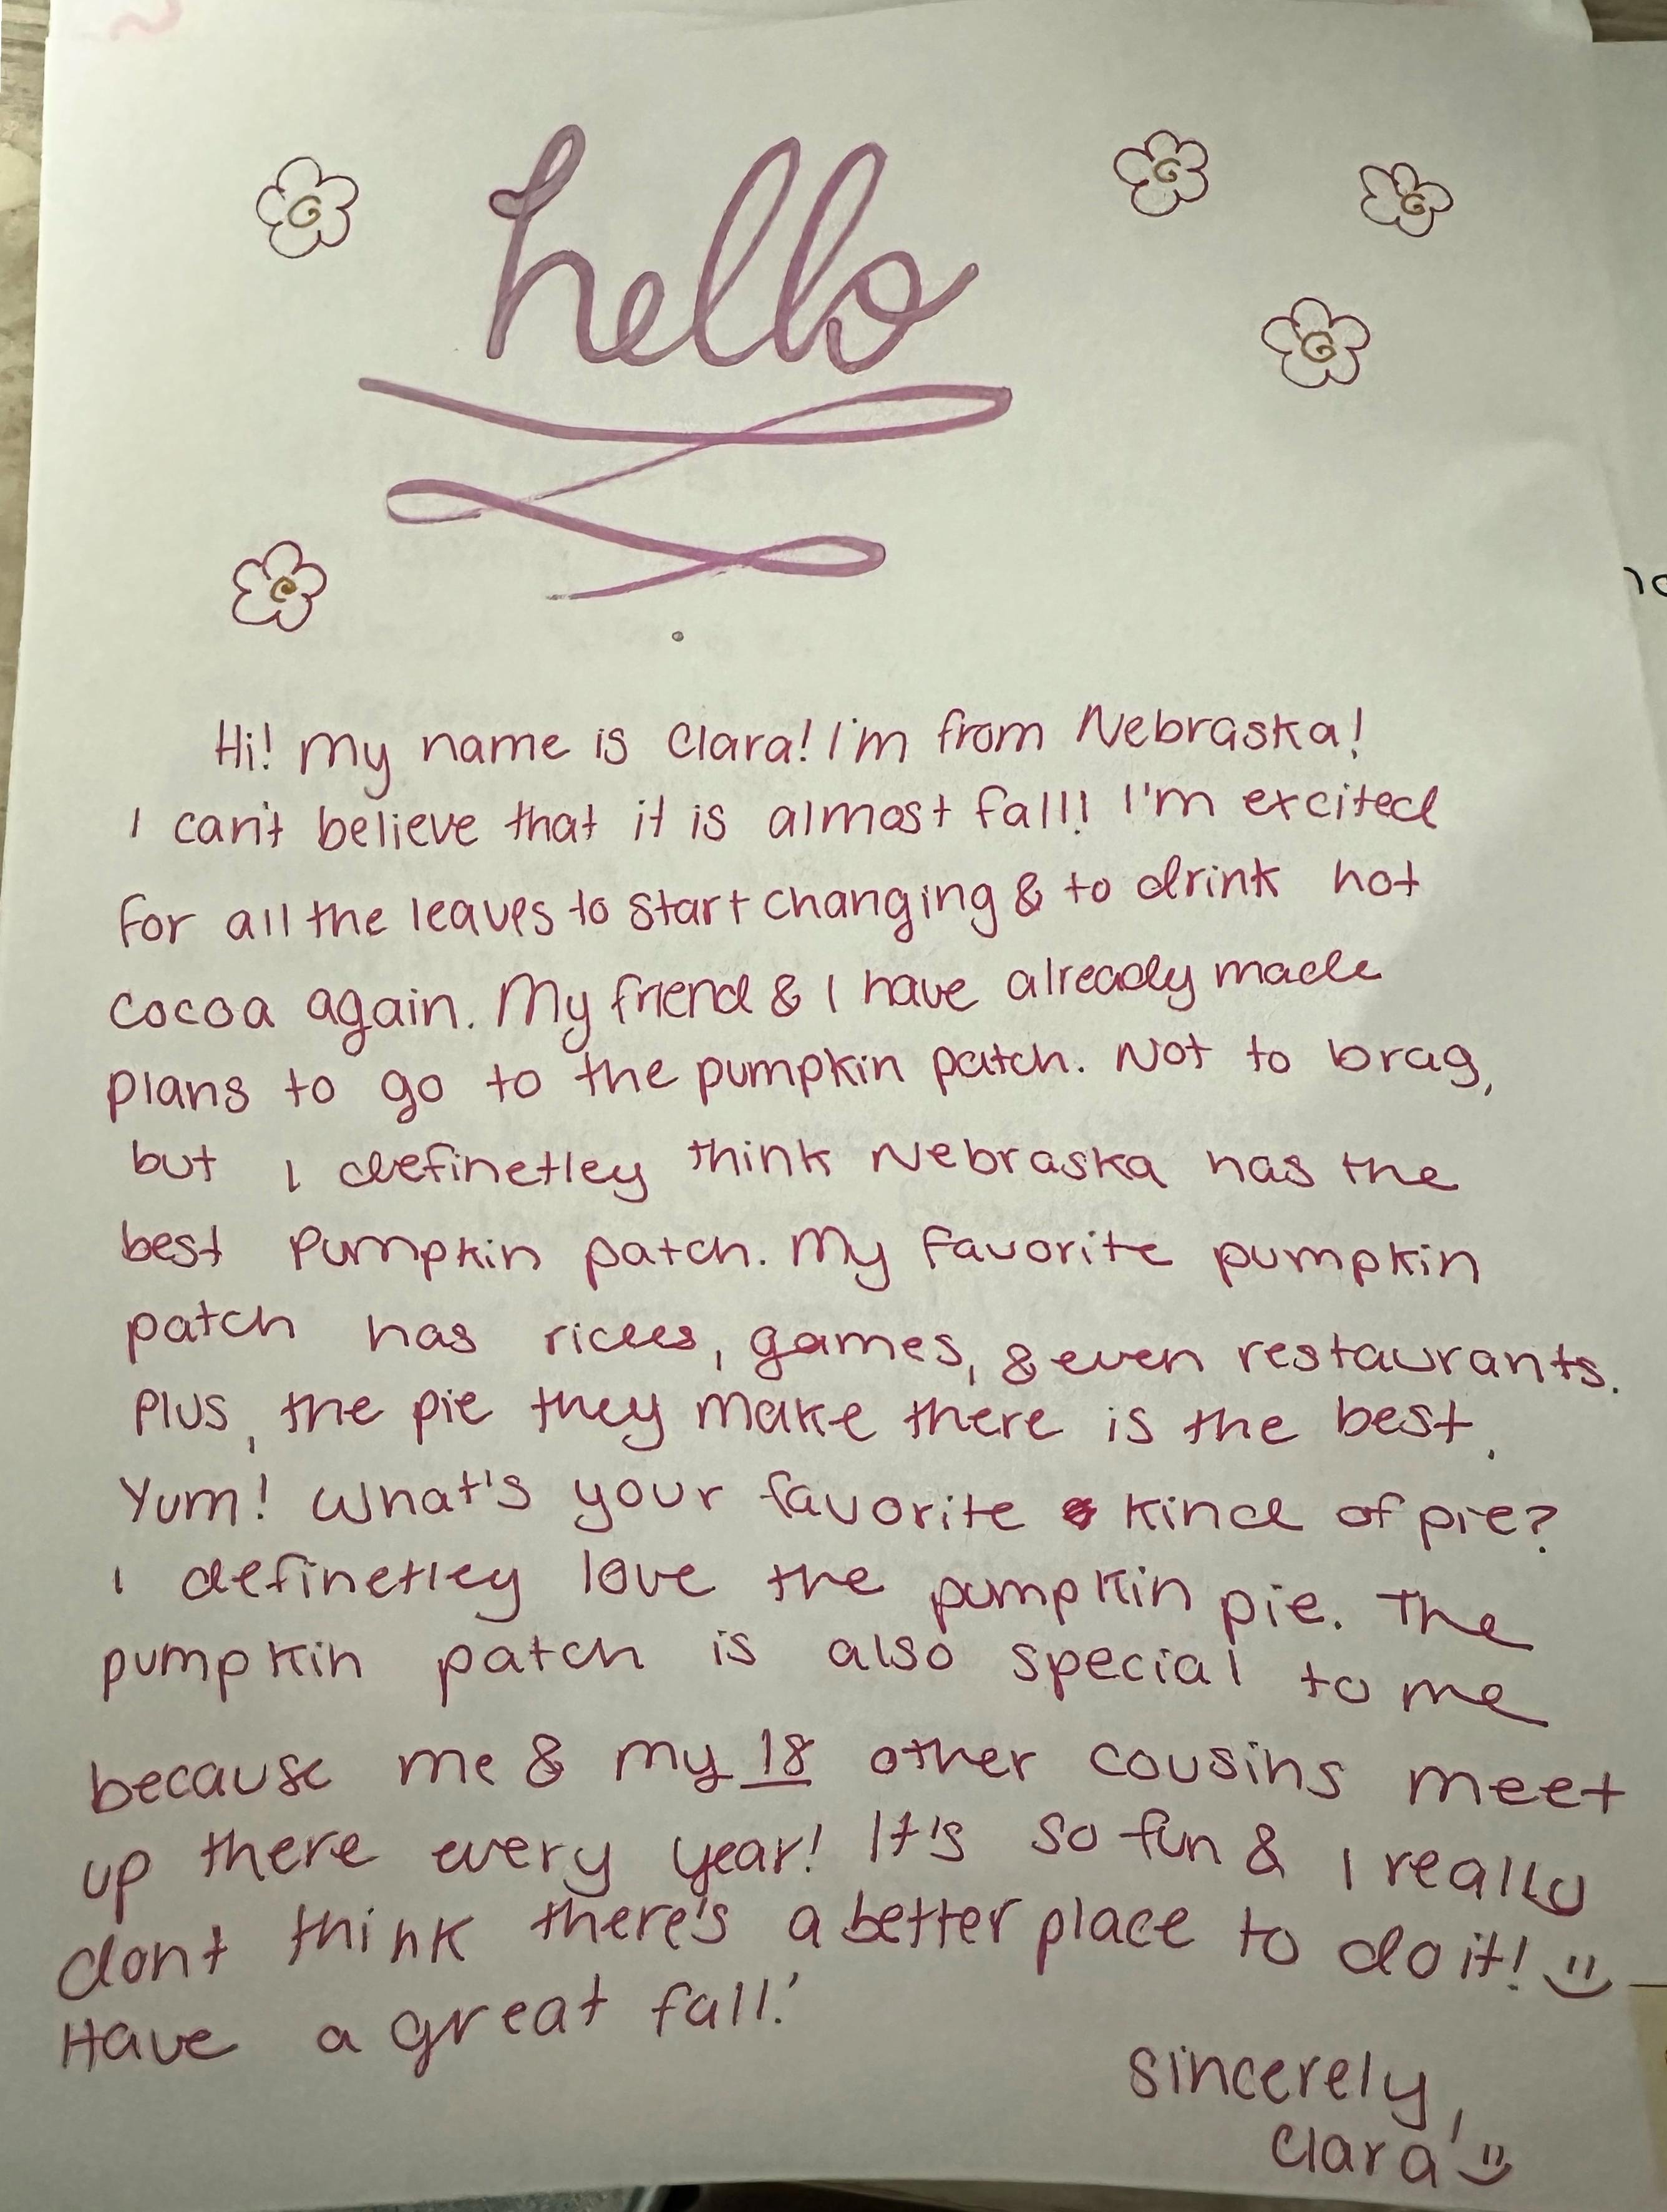 hello
Hi! My name is Clara! I'm from Nebraska!
I can't believe that it is almost fall! I'm excited
for all the leaves to start changing & to drink hot
cocoa again. My friend & I have already made
plans to go to the pumpkin patch. Not to brag,
but I definetley think Nebraska has the
best pumpkin patch. My favorite pumpkin
patch has rides, games, & even restaurants.
Plus, the pie they make there is the best.
Yum! What's your favorite kind of pie?
I definetley love the pumpkin pie. The
pumpkin patch is also special to me
because me & my 18 other cousins meet
up there every year! It's so fun & I really
dont think there's a better place to do it!
Have a great fall!
Sincerely,
Clara